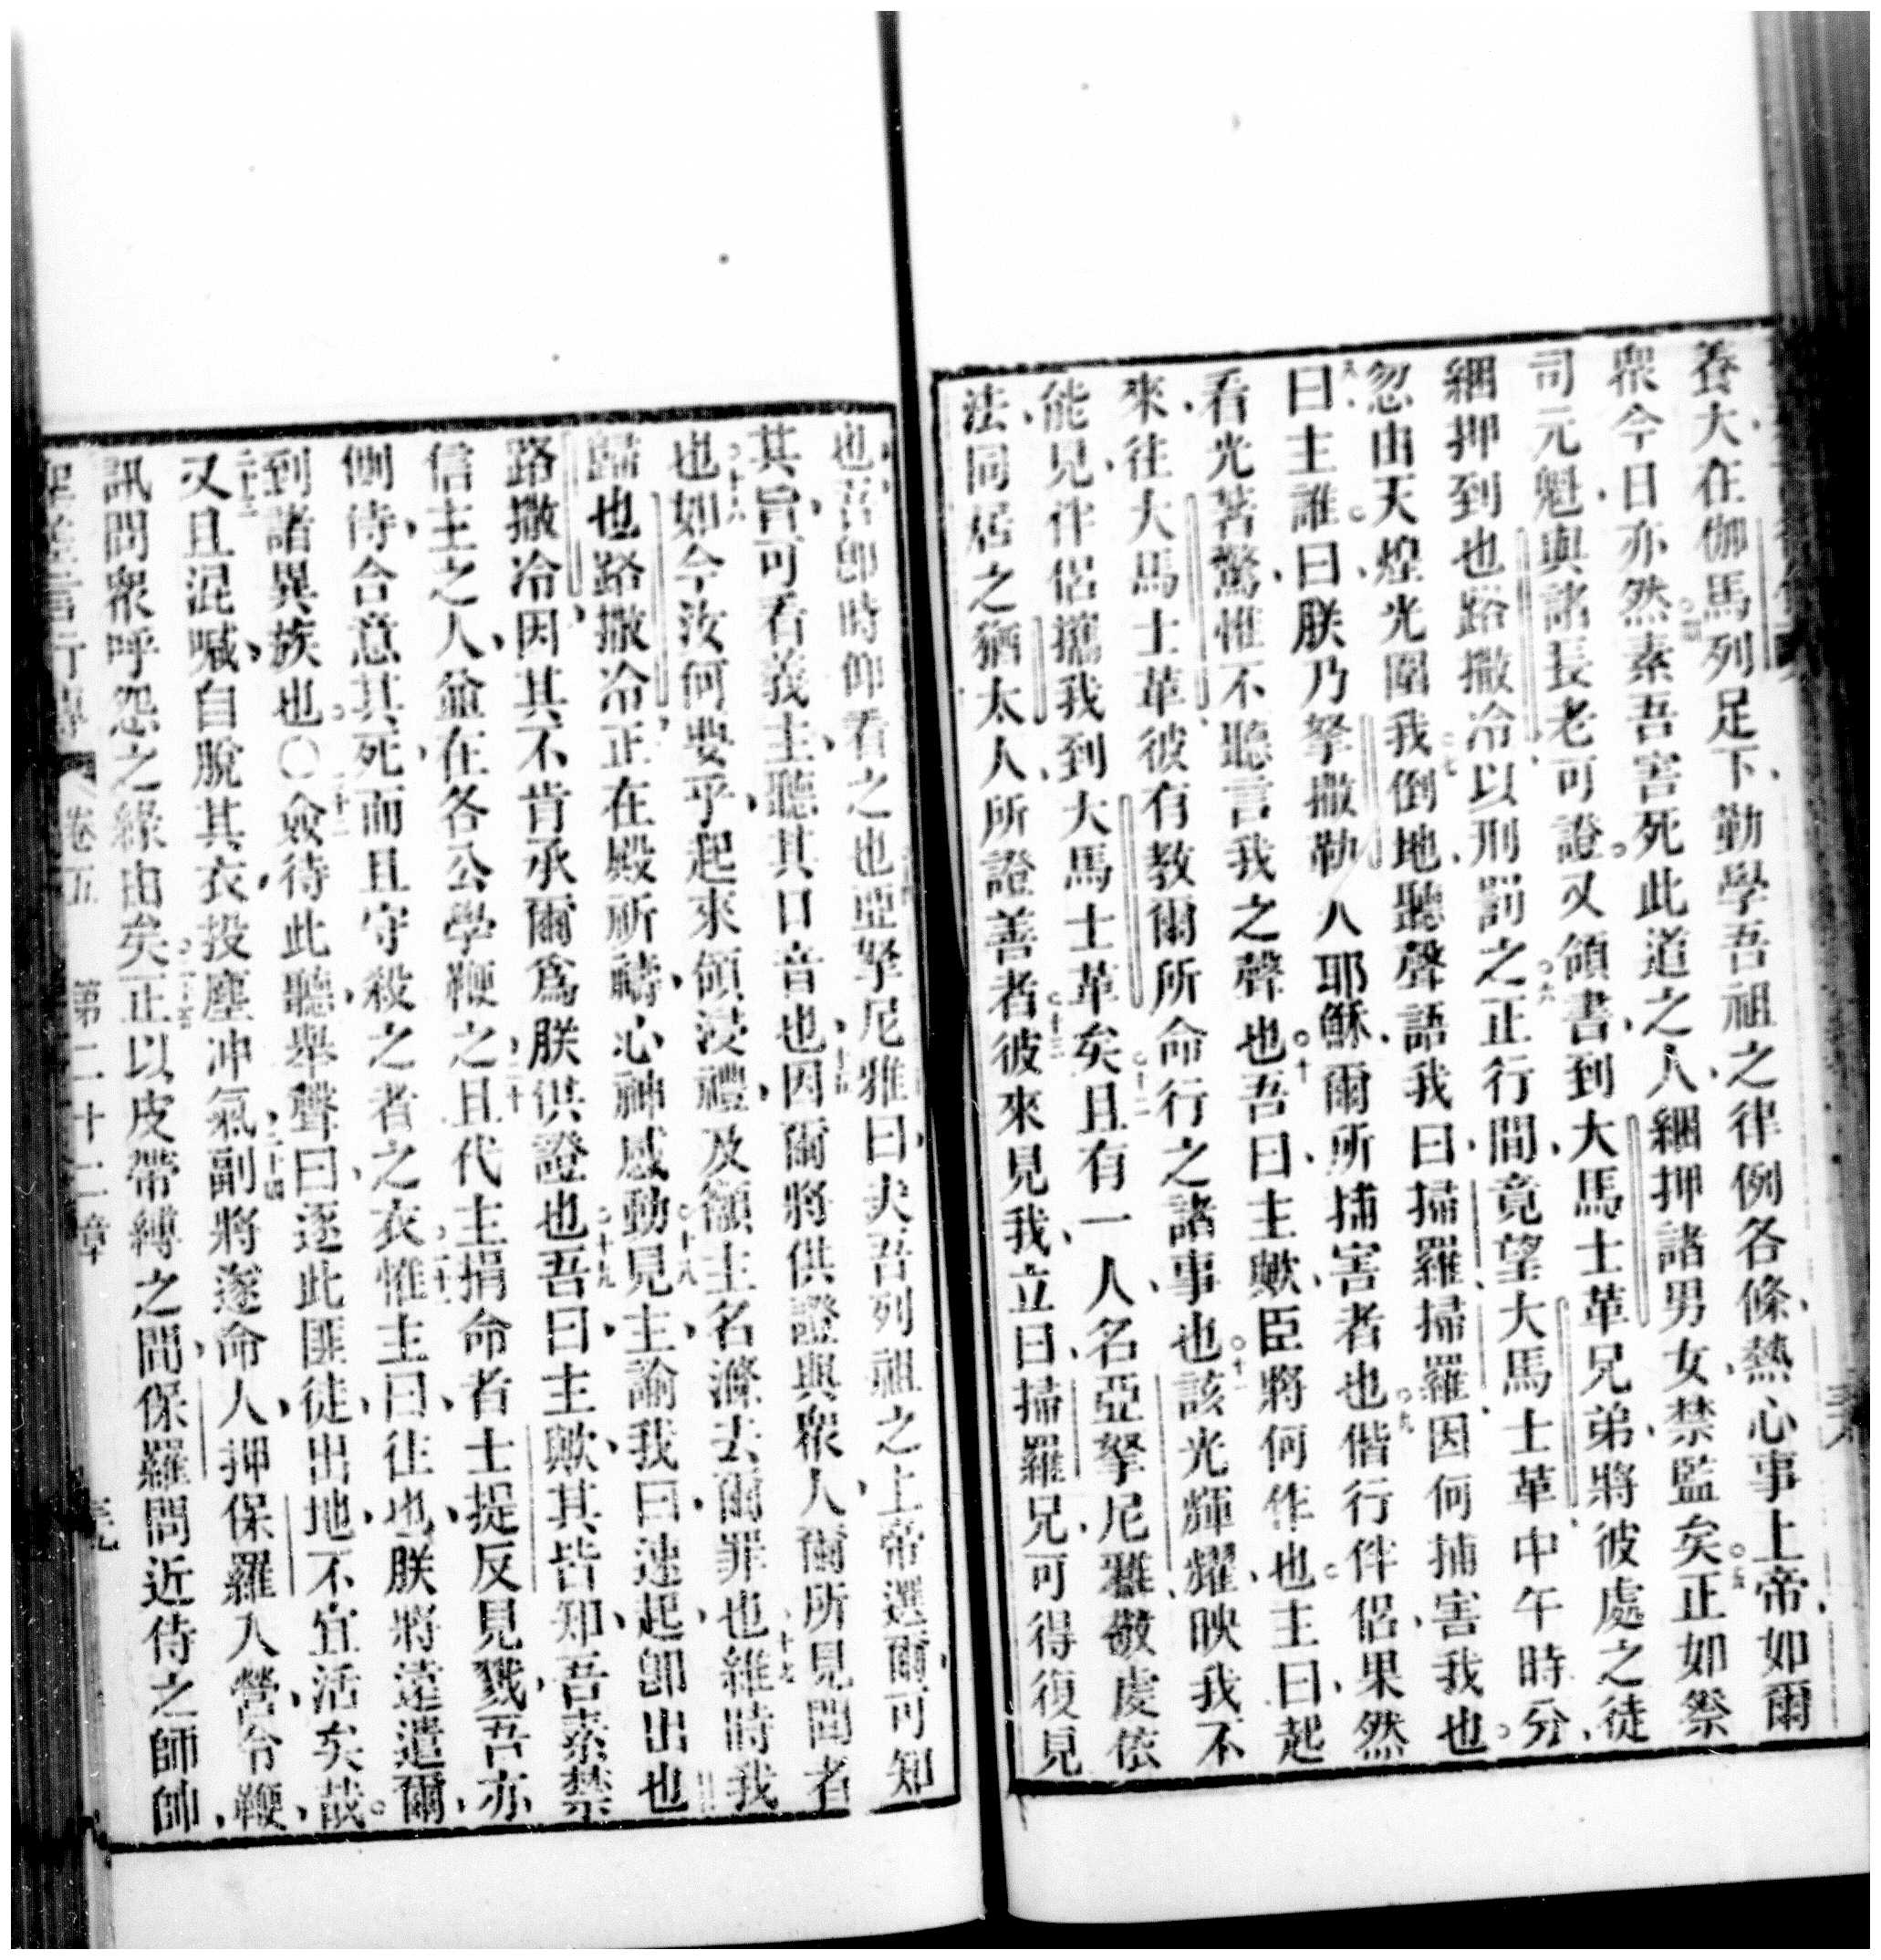 養大在伽馬列足下勤學吾祖之律例各條熱心事上帝如爾
衆今日亦然素吾害死此道之人綑押諸男女禁監矣正如祭
司元魁與諸長老可證又領書到大馬士革兄弟將彼處之徒
綑押到也路撒冷以刑罰之正行間竟望大馬士革中午時分
忽由天煌光圍我倒地聽聲語我曰掃羅掃羅因何捕害我也
曰主誰曰朕乃拏撒勒人耶穌爾所捕害者也偕行伴侶果然
看光著驚惟不聽言我之聲也吾曰主歟臣將何作也主曰起
來往大馬士革彼有教爾所命行之諸事也該光輝耀映我不
能見伴侶攜我到大馬士革矣且有一人名亞拏尼雅敬虔依
法同居之猶太人所證善者彼來見我立曰掃羅兄可得復見
也吾即時仰看之也亞拏尼雅曰夫吾列祖之上帝選爾可知
其旨可看義主聽其口音也因爾將供證與衆人爾所見聞者
也如今汝何要乎起來領浸禮及籲主名滌去爾罪也維時我
歸也路撒冷正在殿祈禱心神感動見主諭我曰速起卽出也
路撒冷因其不肯承爾爲朕供證也吾曰主歟其皆知吾素禁
信主之人並在各公學鞭之且代主捐命者士提反見戮吾亦
側侍合意其死而且守殺之者之衣惟主曰往也朕將遠遣爾
到諸異族也〇僉待此聽舉聲曰逐此匪徒出地不宜活矣哉
又且混喊自脫其衣投塵冲氣副將遂命人押保羅入營令鞭
訊問衆呼怨之緣由矣正以皮帶縛之間保羅問近侍之師帥
卷五 第二十二章